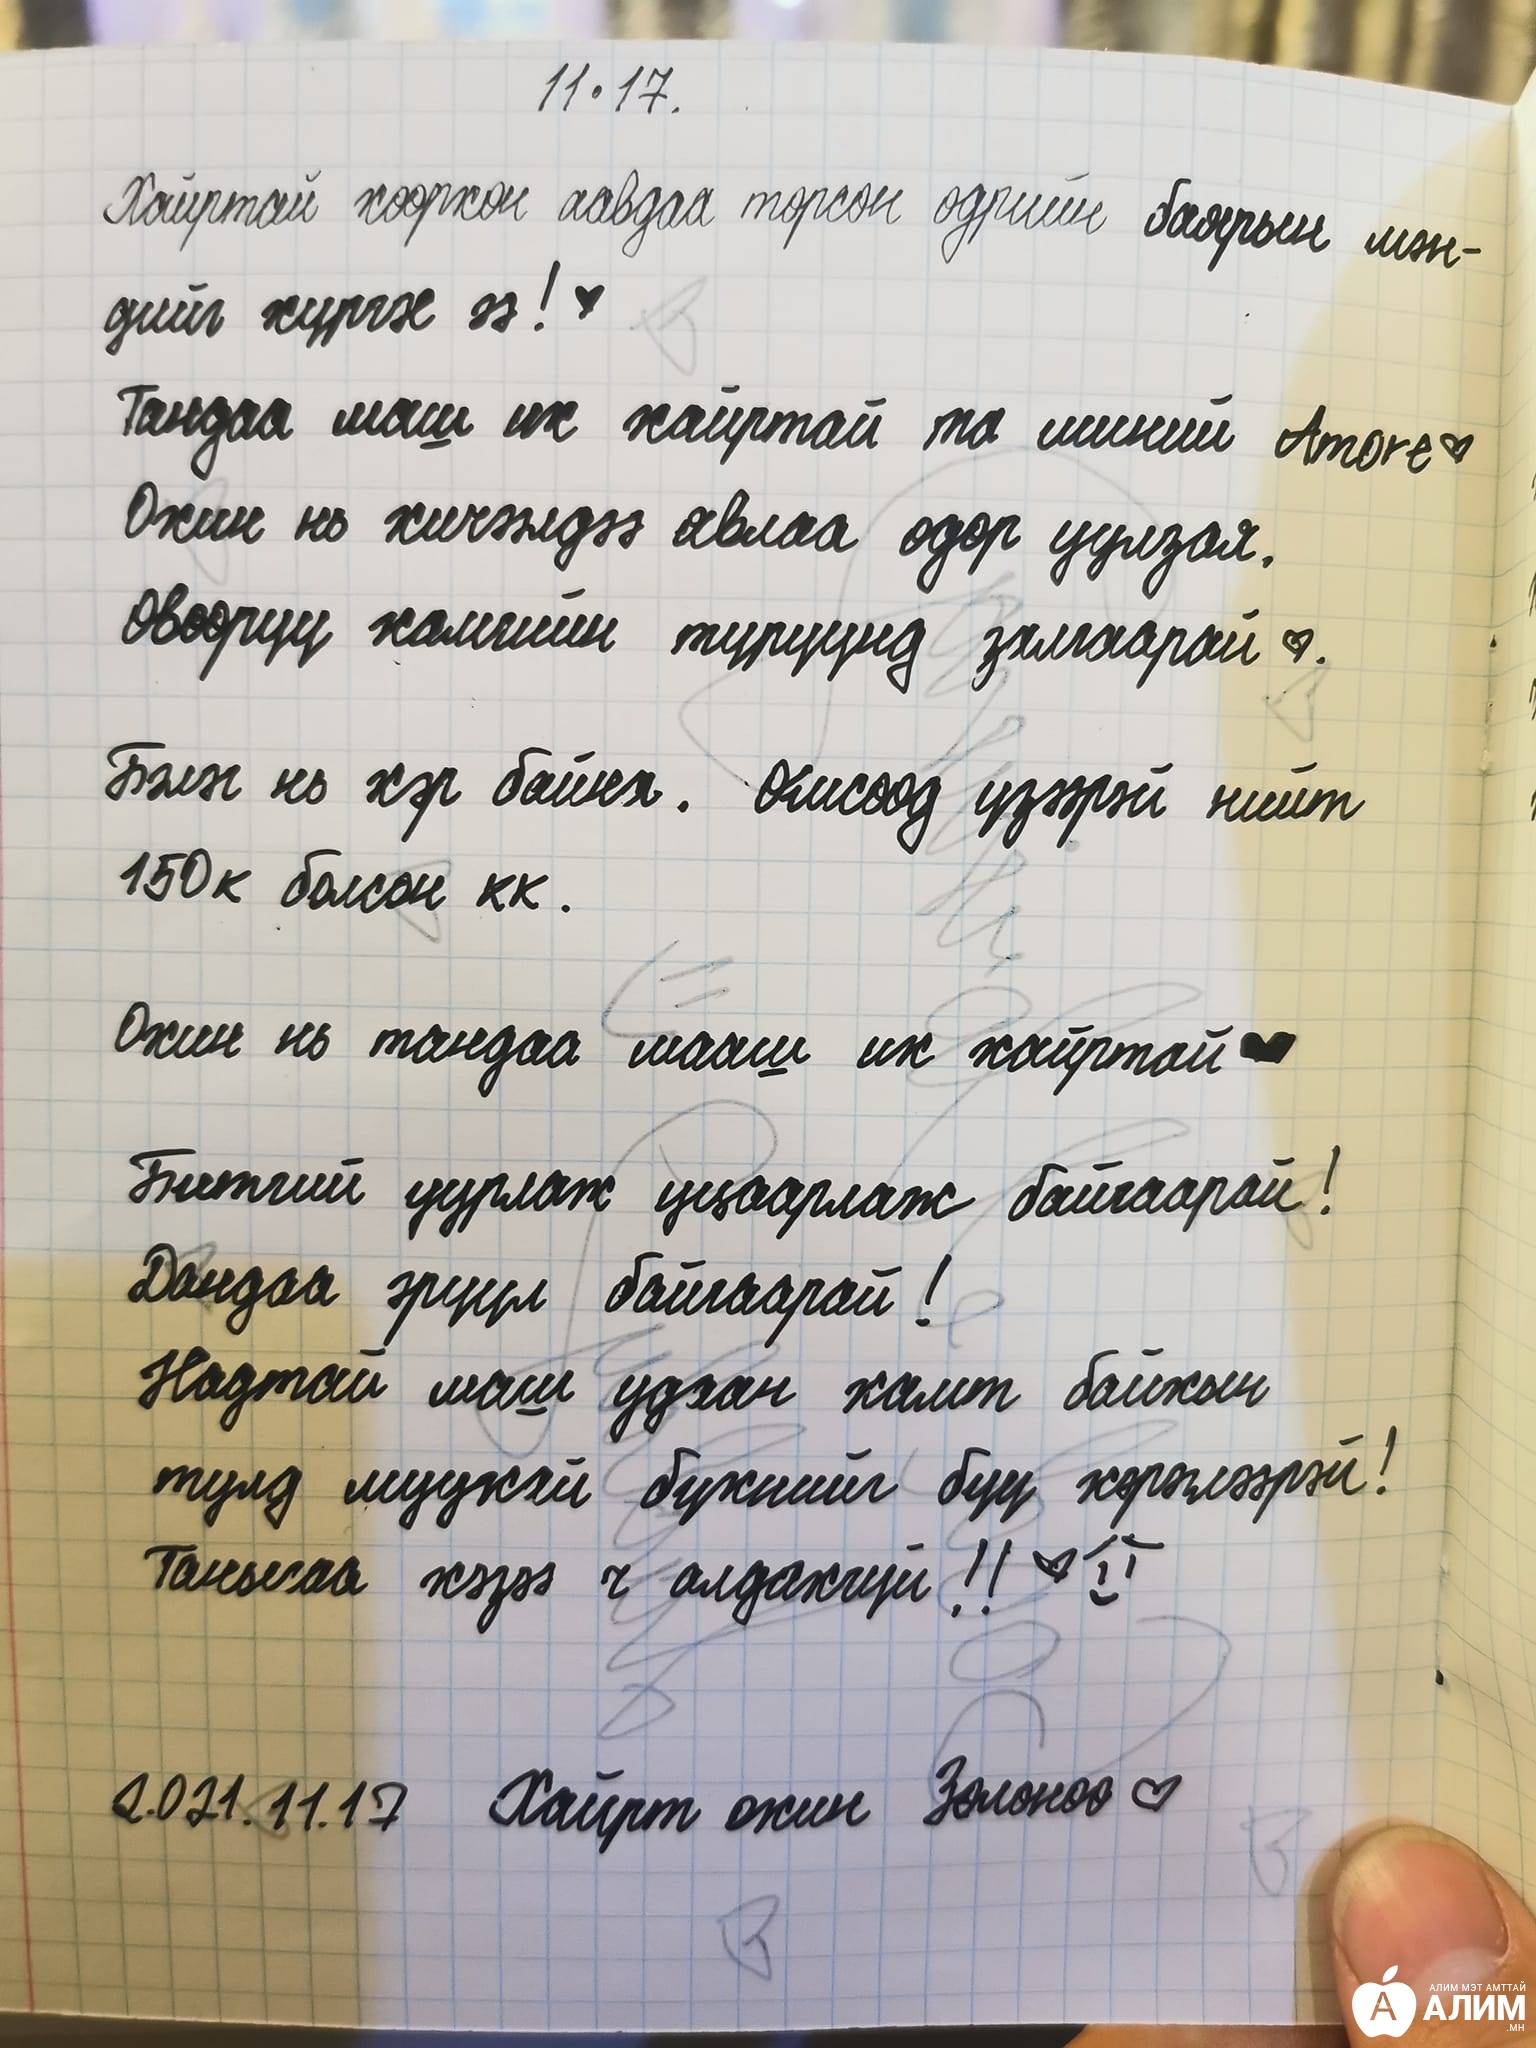 11.17.
Хайртай хөөрхөн аавдаа төрсөн өдрийн баярын мэн-
дийг хүргэе ээ! ♥
Тандаа маш их хайртай та миний Amore ♡
Охин нь хичээлдээ явлаа өдөр уулзая.
Өвөөрүү хамгийн түрүүнд залгаарай ♡.
Бэлэг нь хэр байна. Өмсөөд үзээрэй нийт
150к болсон кк.
Охин нь тандаа мааш их хайртай ♥
Битгий уурлаж уцаарлаж байгаарай!
Дандаа эрүүл байгаарай!
Надтай маш удаан хамт байхын
тулд муужай бүхнийг бүү хэрэглээрэй!
Таньгаа хэзээ ч алдахгүй!! ♥
2.021.11.17 Хайрт охин Золоноо ♡
АЛИМ МЭТ АМТТАЙ
АЛИМ
.МН